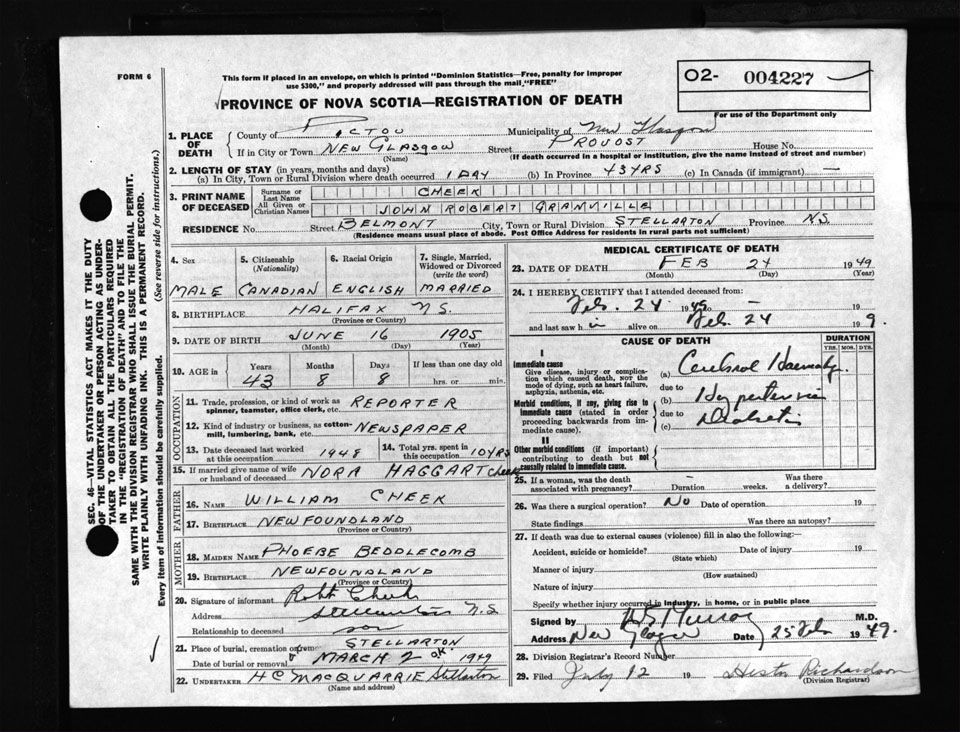 FORM 6
This form if placed in an envelope, on which is printed "Dominion Statistics—Free, penalty for improper
use $300," and properly addressed will pass through the mail, "FREE"
O2- 004227
For use of the Department only
PROVINCE OF NOVA SCOTIA—REGISTRATION OF DEATH
1. PLACE OF DEATH
County of PICTOU Municipality of New Glasgow
If in City or Town NEW GLASGOW Street PROVOST House No.
(Name) (If death occurred in a hospital or institution, give the name instead of street and number)
2. LENGTH OF STAY (in years, months and days)
(a) In City, Town or Rural Division where death occurred 1 DAY (b) In Province 43 YRS (c) In Canada (if immigrant) —
3. PRINT NAME OF DECEASED
Surname or Last Name CHEEK
All Given or Christian Names JOHN ROBERT GRANVILLE
RESIDENCE No. Street BELMONT City, Town or Rural Division STELLARTON Province N.S.
(Residence means usual place of abode. Post Office Address for residents in rural parts not sufficient)
4. Sex 5. Citizenship (Nationality) 6. Racial Origin 7. Single, Married, Widowed or Divorced (write the word)
MALE CANADIAN ENGLISH MARRIED
8. BIRTHPLACE HALIFAX N.S.
(Province or Country)
9. DATE OF BIRTH JUNE 16 1905
(Month) (Day) (Year)
10. AGE in Years Months Days If less than one day old
43 8 8 hrs. or min.
OCCUPATION
11. Trade, profession, or kind of work as spinner, teamster, office clerk, etc. REPORTER
12. Kind of industry or business, as cotton-mill, lumbering, bank, etc. NEWSPAPER
13. Date deceased last worked at this occupation 1948 14. Total yrs. spent in this occupation 10 YRS
15. If married give name of wife or husband of deceased NORA HAGGART Cheek
FATHER
16. Name WILLIAM CHEEK
17. Birthplace NEWFOUNDLAND
(Province or Country)
MOTHER
18. Maiden Name PHOEBE BEDDLECOMB
19. Birthplace NEWFOUNDLAND
(Province or Country)
20. Signature of informant Robt Cheek
Address Stellarton N.S.
Relationship to deceased son
21. Place of burial, cremation or STELLARTON
Date of burial or removal MARCH 2 1949
22. UNDERTAKER H C MACQUARRIE Stellarton
(Name and address)
MEDICAL CERTIFICATE OF DEATH
23. DATE OF DEATH FEB 24 1949
(Month) (Day) (Year)
24. I HEREBY CERTIFY that I attended deceased from:
Feb. 24 1949 to — 19
and last saw h alive on Feb. 24 19 9.
CAUSE OF DEATH DURATION
YRS. MOS. DYS.
I
Immediate cause
Give disease, injury or complication which caused death, not the mode of dying, such as heart failure, asphyxia, asthenia, etc.
(a) Cerebral
due to
Morbid conditions, if any, giving rise to immediate cause (stated in order proceeding backwards from immediate cause).
(b) Hypertension
due to
(c)
II
Other morbid conditions (if important) contributing to death but not causally related to immediate cause.
25. If a woman, was the death associated with pregnancy? — Duration weeks. Was there a delivery?
26. Was there a surgical operation? NO Date of operation 19
State findings Was there an autopsy?
27. If death was due to external causes (violence) fill in also the following:—
Accident, suicide or homicide? Date of injury 19
(State which)
Manner of injury
(How sustained)
Nature of injury
Specify whether injury occurred in industry, in home, or in public place
Signed by Murray M.D.
Address New Glasgow Date 25 Feb 1949.
28. Division Registrar's Record Number
29. Filed July 12 19 Richardson
(Division Registrar)
SEC. 46—VITAL STATISTICS ACT MAKES IT THE DUTY
OF THE UNDERTAKER OR PERSON ACTING AS UNDER-
TAKER TO OBTAIN ALL THE PARTICULARS REQUIRED
IN THE "REGISTRATION OF DEATH" AND TO FILE THE
SAME WITH THE DIVISION REGISTRAR WHO SHALL ISSUE THE BURIAL PERMIT.
WRITE PLAINLY WITH UNFADING INK. THIS IS A PERMANENT RECORD.
Every item of information should be carefully supplied. (See reverse side for instructions.)